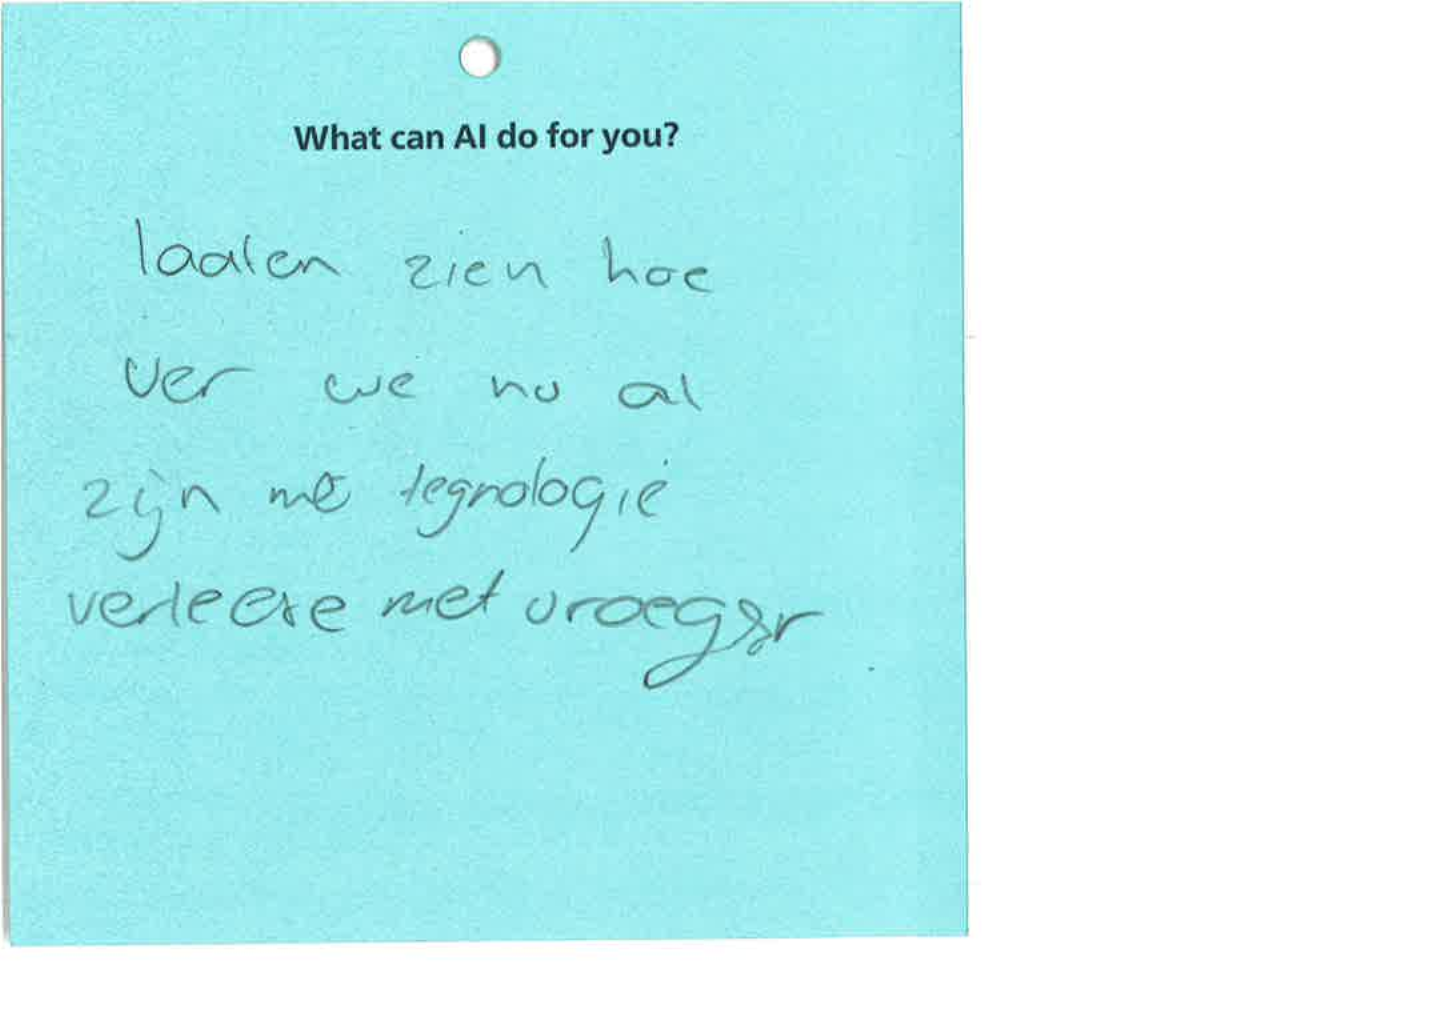 What can AI do for you?
laaten zien hoe
ver we nu al
zijn met tegnologie
verleere met vroeger